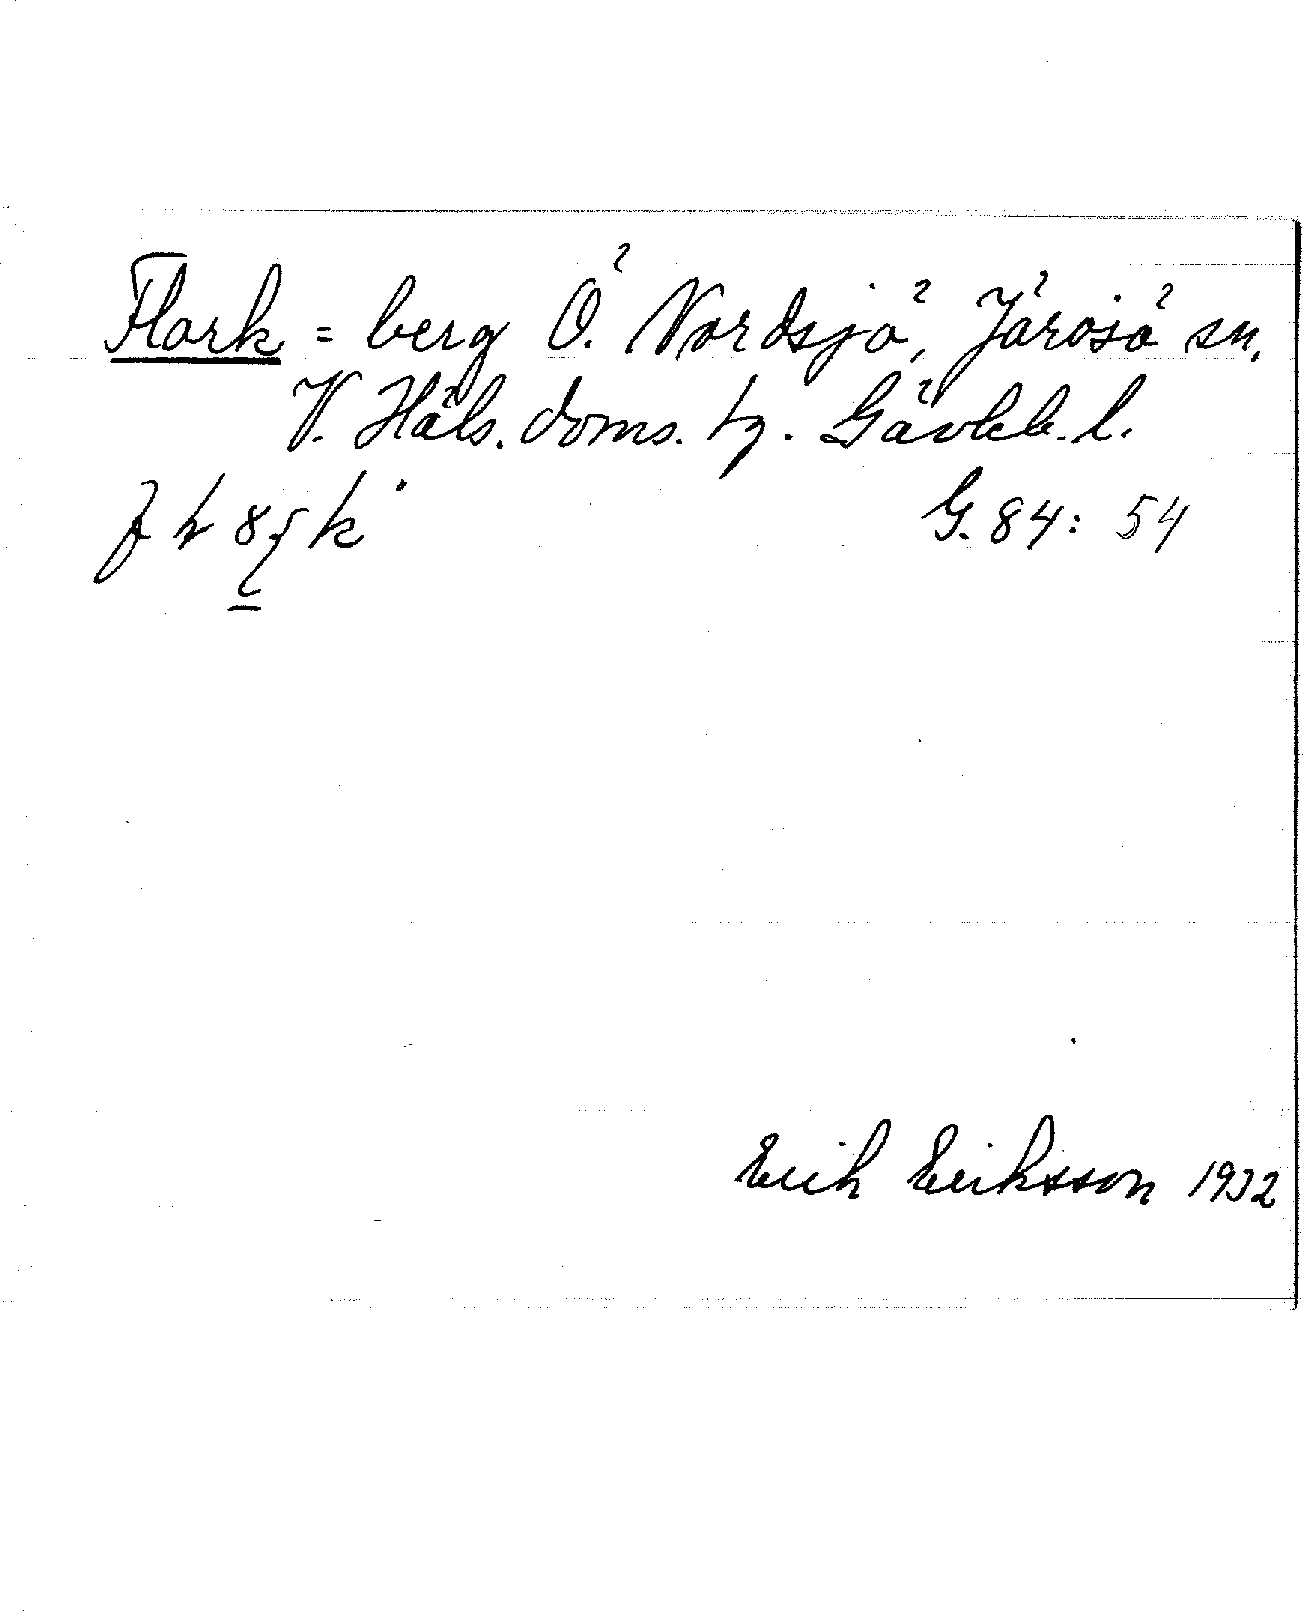 Flark = berg Ö. Nordsjö, Järvsö sn.
V. Häls. doms. tg. Gävleb. l.
G. 84: 54
Erik Eriksson 1932